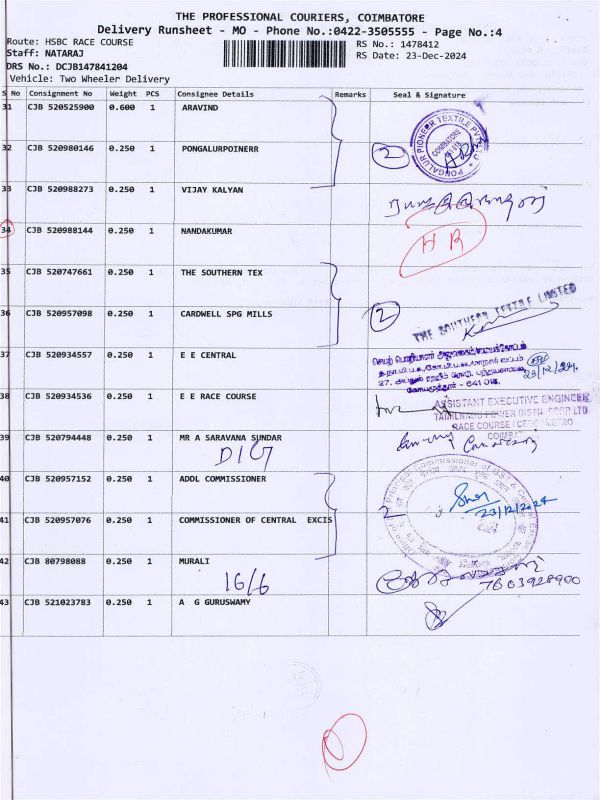 THE PROFESSIONAL COURIERS, COIMBATORE
Delivery Runsheet - MO - Phone No.:0422-3505555 - Page No.:4
Route: HSBC RACE COURSE
RS No.: 1478412
Staff: NATARAJ
RS Date: 23-Dec-2024
DRS No.: DCJB147841204
Vehicle: Two Wheeler Delivery
S No Consignment No Weight PCS Consignee Details Remarks Seal & Signature
31 CJB 520525900 0.600 1 ARAVIND
PONGALUR PIONEER TEXTILE PVT
COIMBATORE
32 CJB 520980146 0.250 1 PONGALURPOINERR 2
33 CJB 520988273 0.250 1 VIJAY KALYAN
34 CJB 520988144 0.250 1 NANDAKUMAR
HR
35 CJB 520747661 0.250 1 THE SOUTHERN TEX
THE SOUTHERN TEXTILE LIMITED
36 CJB 520957098 0.250 1 CARDWELL SPG MILLS 2
37 CJB 520934557 0.250 1 E E CENTRAL
23/12/24
641 018
38 CJB 520934536 0.250 1 E E RACE COURSE
ASSISTANT EXECUTIVE ENGINEER
TAMILNADU POWER DISTN. CORP LTD
RACE COURSE
39 CJB 520794448 0.250 1 MR A SARAVANA SUNDAR
DIG
40 CJB 520957152 0.250 1 ADDL COMMISSIONER
Principal Commissioner of GST & Central
2
23/12/2024
41 CJB 520957076 0.250 1 COMMISSIONER OF CENTRAL EXCIS
42 CJB 80798088 0.250 1 MURALI
16/6
7603928900
43 CJB 521023783 0.250 1 A G GURUSWAMY